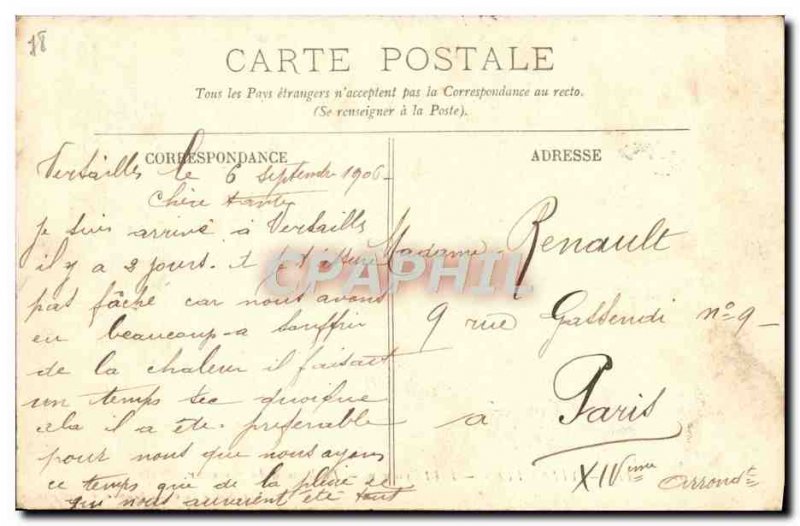 18
CARTE POSTALE
Tous les Pays étrangers n'acceptent pas la Correspondance au recto.
(Se renseigner à la Poste).
CORRESPONDANCE
Versailles le 6 septembre 1906
Chère tante
je suis arrivé à Versailles
il y a 2 jours. et
pas fâché car nous avons
eu beaucoup a souffrir
de la chaleur il faisait
un temps sec quoique
cela il a été préférable
pour nous que nous ayons
ce temps que de la pluie se
qui nous auraient été tout
ADRESSE
Madame Renault
9 rue Gassendi n° 9
à Paris
XIVème Arrondt
CPAPHIL